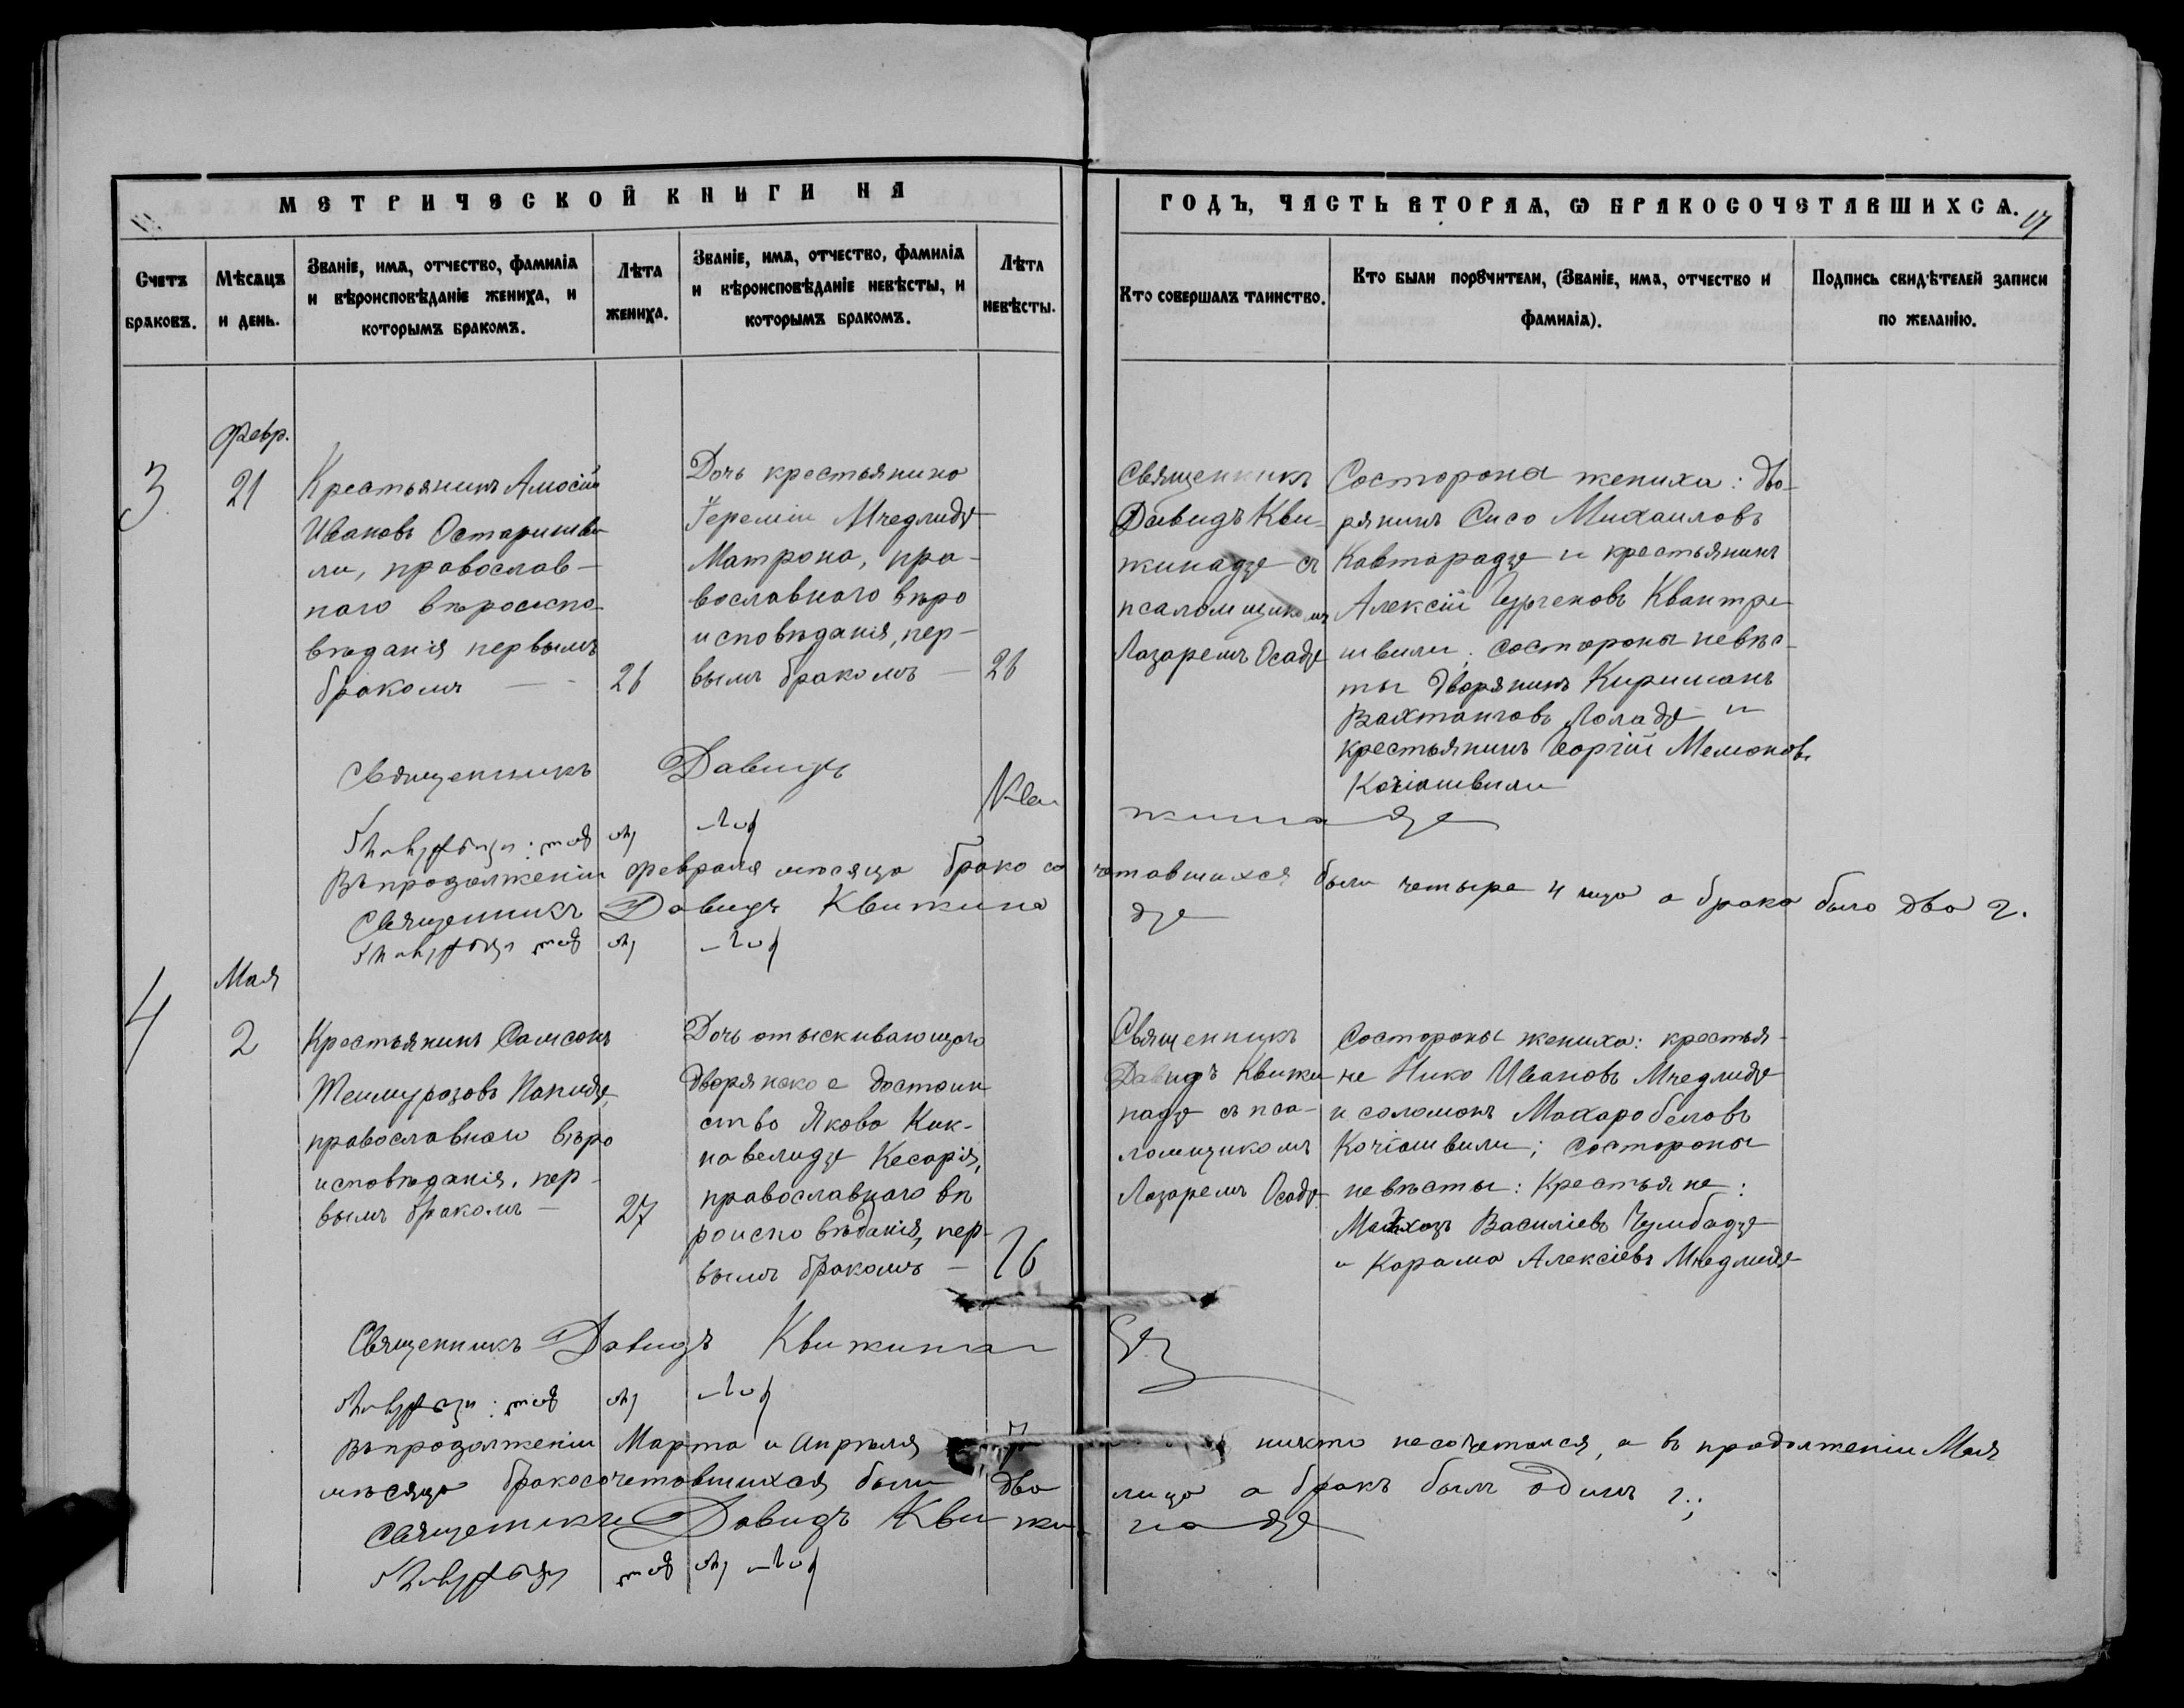 МЕТРИЧЕСКОЙ КНИГИ НА
ГОДЪ, ЧАСТЬ ВТОРАЯ, Ѡ БРАКОСОЧЕТАВШИХСЯ.
Счетъ браковъ.
Мѣсяцъ и день.
Званіе, имя, отчество, фамилія и вѣроисповѣданіе жениха, и которымъ бракомъ.
Лѣта жениха.
Званіе, имя, отчество, фамилія и вѣроисповѣданіе невѣсты, и которымъ бракомъ.
Лѣта невѣсты.
Кто совершалъ таинство.
Кто были поручители, (Званіе, имя, отчество и фамилія).
Подпись свидѣтелей записи по желанію.
3
Февр.
21
Крестьянинъ Амосій
Ивановъ Остаришви
ли, православ-
наго вѣроиспо-
вѣданія первымъ
бракомъ
26
Дочь крестьянина
Іереміи Мчедлидзе
Матрона, пра-
вославнаго вѣро
исповѣданія, пер-
вымъ бракомъ
26
Священникъ
Давидъ Кви-
жинадзе съ
псаломщикомъ
Лазаремъ Осадзе
Состороны жениха: дво-
рянинъ Сисо Михаиловъ
Кавтарадзе и крестьянинъ
Алексій Квантри
швили; состороны невѣс-
ты дворянинъ Киришанъ
Вахтанговъ Лоладзе и
крестьянинъ Георгій Мелоновъ
Кочіашвили
Священникъ Давидъ Кви
жинадзе
Въ продолженіи февраля мѣсяца брако со четавшихся были четыре 4 лица а брака было два 2.
Священникъ Давидъ Квижина дзе
4
Мая
2
Крестьянинъ Самсонъ
Теимуразовъ Папидзе,
православнаго вѣро
исповѣданія, пер-
вымъ бракомъ
27
Дочь отыскивающаго
дворянское достоин
ство Якова Кик-
навелидзе Кесарія,
православнаго вѣ
роисповѣданія, пер-
вымъ бракомъ
16
Священникъ
Давидъ Квижи
надзе съ пса-
ломщикомъ
Лазаремъ Осадзе.
Состороны жениха: крестья-
не Нико Ивановъ Мчедлидзе
и Соломонъ Махаробеловъ
Кочіашвили; состороны
невѣсты: Крестьяне:
Василіевъ Чумбадзе
и Карамо Алексіевъ Мчедлидзе
Священникъ Давидъ Квижина
дзе
Въ продолженіи Марта и Апрѣля никто несочетался, а въ продолженіи Мая
мѣсяца бракосочетавшихся были два лица а бракъ былъ одинъ
Священникъ Давидъ Квижи надзе